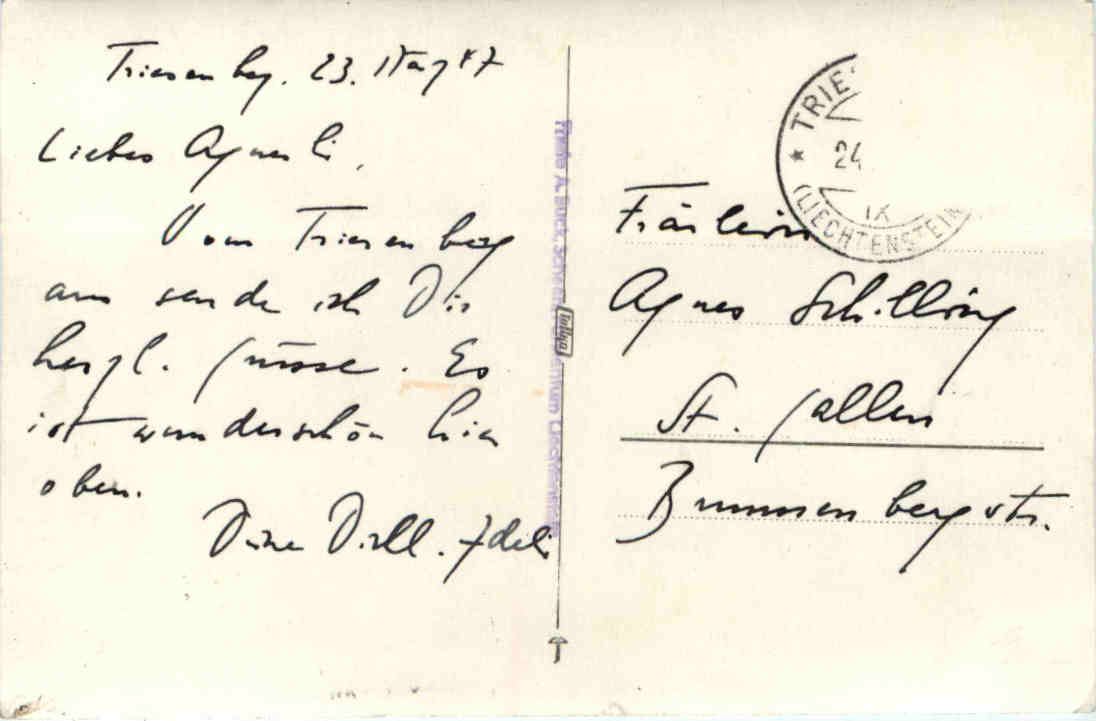 Triesenberg. 23. Aug 47
Liebes Agnesli,
Vom Triesenberg
aus sende ich Dir
herzl. Grüsse. Es
ist wunderschön hier
oben.
Deine
Photo A. Buck, Schaan
Liechtenstein
TRIES
24
IX
(LIECHTENSTEIN
Fräulein
Agnes Schilling
St. Gallen
Brunnenbergstr.